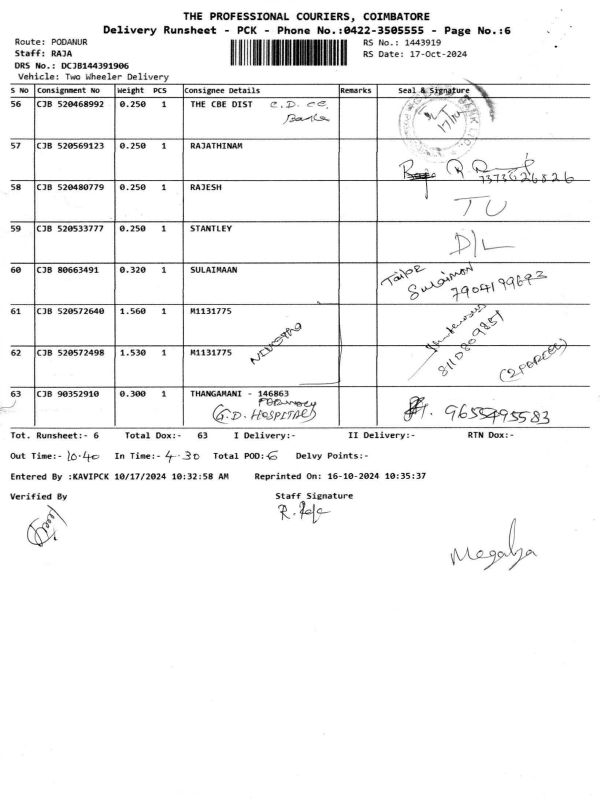 THE PROFESSIONAL COURIERS, COIMBATORE
Delivery Runsheet - PCK - Phone No.:0422-3505555 - Page No.:6
Route: PODANUR RS No.: 1443919
Staff: RAJA RS Date: 17-Oct-2024
DRS No.: DCJB144391906
Vehicle: Two Wheeler Delivery
S No Consignment No Weight PCS Consignee Details Remarks Seal & Signature
56 CJB 520468992 0.250 1 THE CBE DIST C.D. CE.
Bank
57 CJB 520569123 0.250 1 RAJATHINAM
7373626826
58 CJB 520480779 0.250 1 RAJESH
TU
59 CJB 520533777 0.250 1 STANTLEY
D/L
60 CJB 80663491 0.320 1 SULAIMAAN
Sulaiman
7904199693
61 CJB 520572640 1.560 1 M1131775
8110809851
62 CJB 520572498 1.530 1 M1131775
63 CJB 90352910 0.300 1 THANGAMANI - 146863
(G.D. HOSPITAL) 9655495583
Tot. Runsheet:- 6 Total Dox:- 63 I Delivery:- II Delivery:- RTN Dox:-
Out Time:- 10.40 In Time:- 4.30 Total POD:- 6 Delvy Points:-
Entered By :KAVIPCK 10/17/2024 10:32:58 AM Reprinted On: 16-10-2024 10:35:37
Verified By Staff Signature
R. Raja